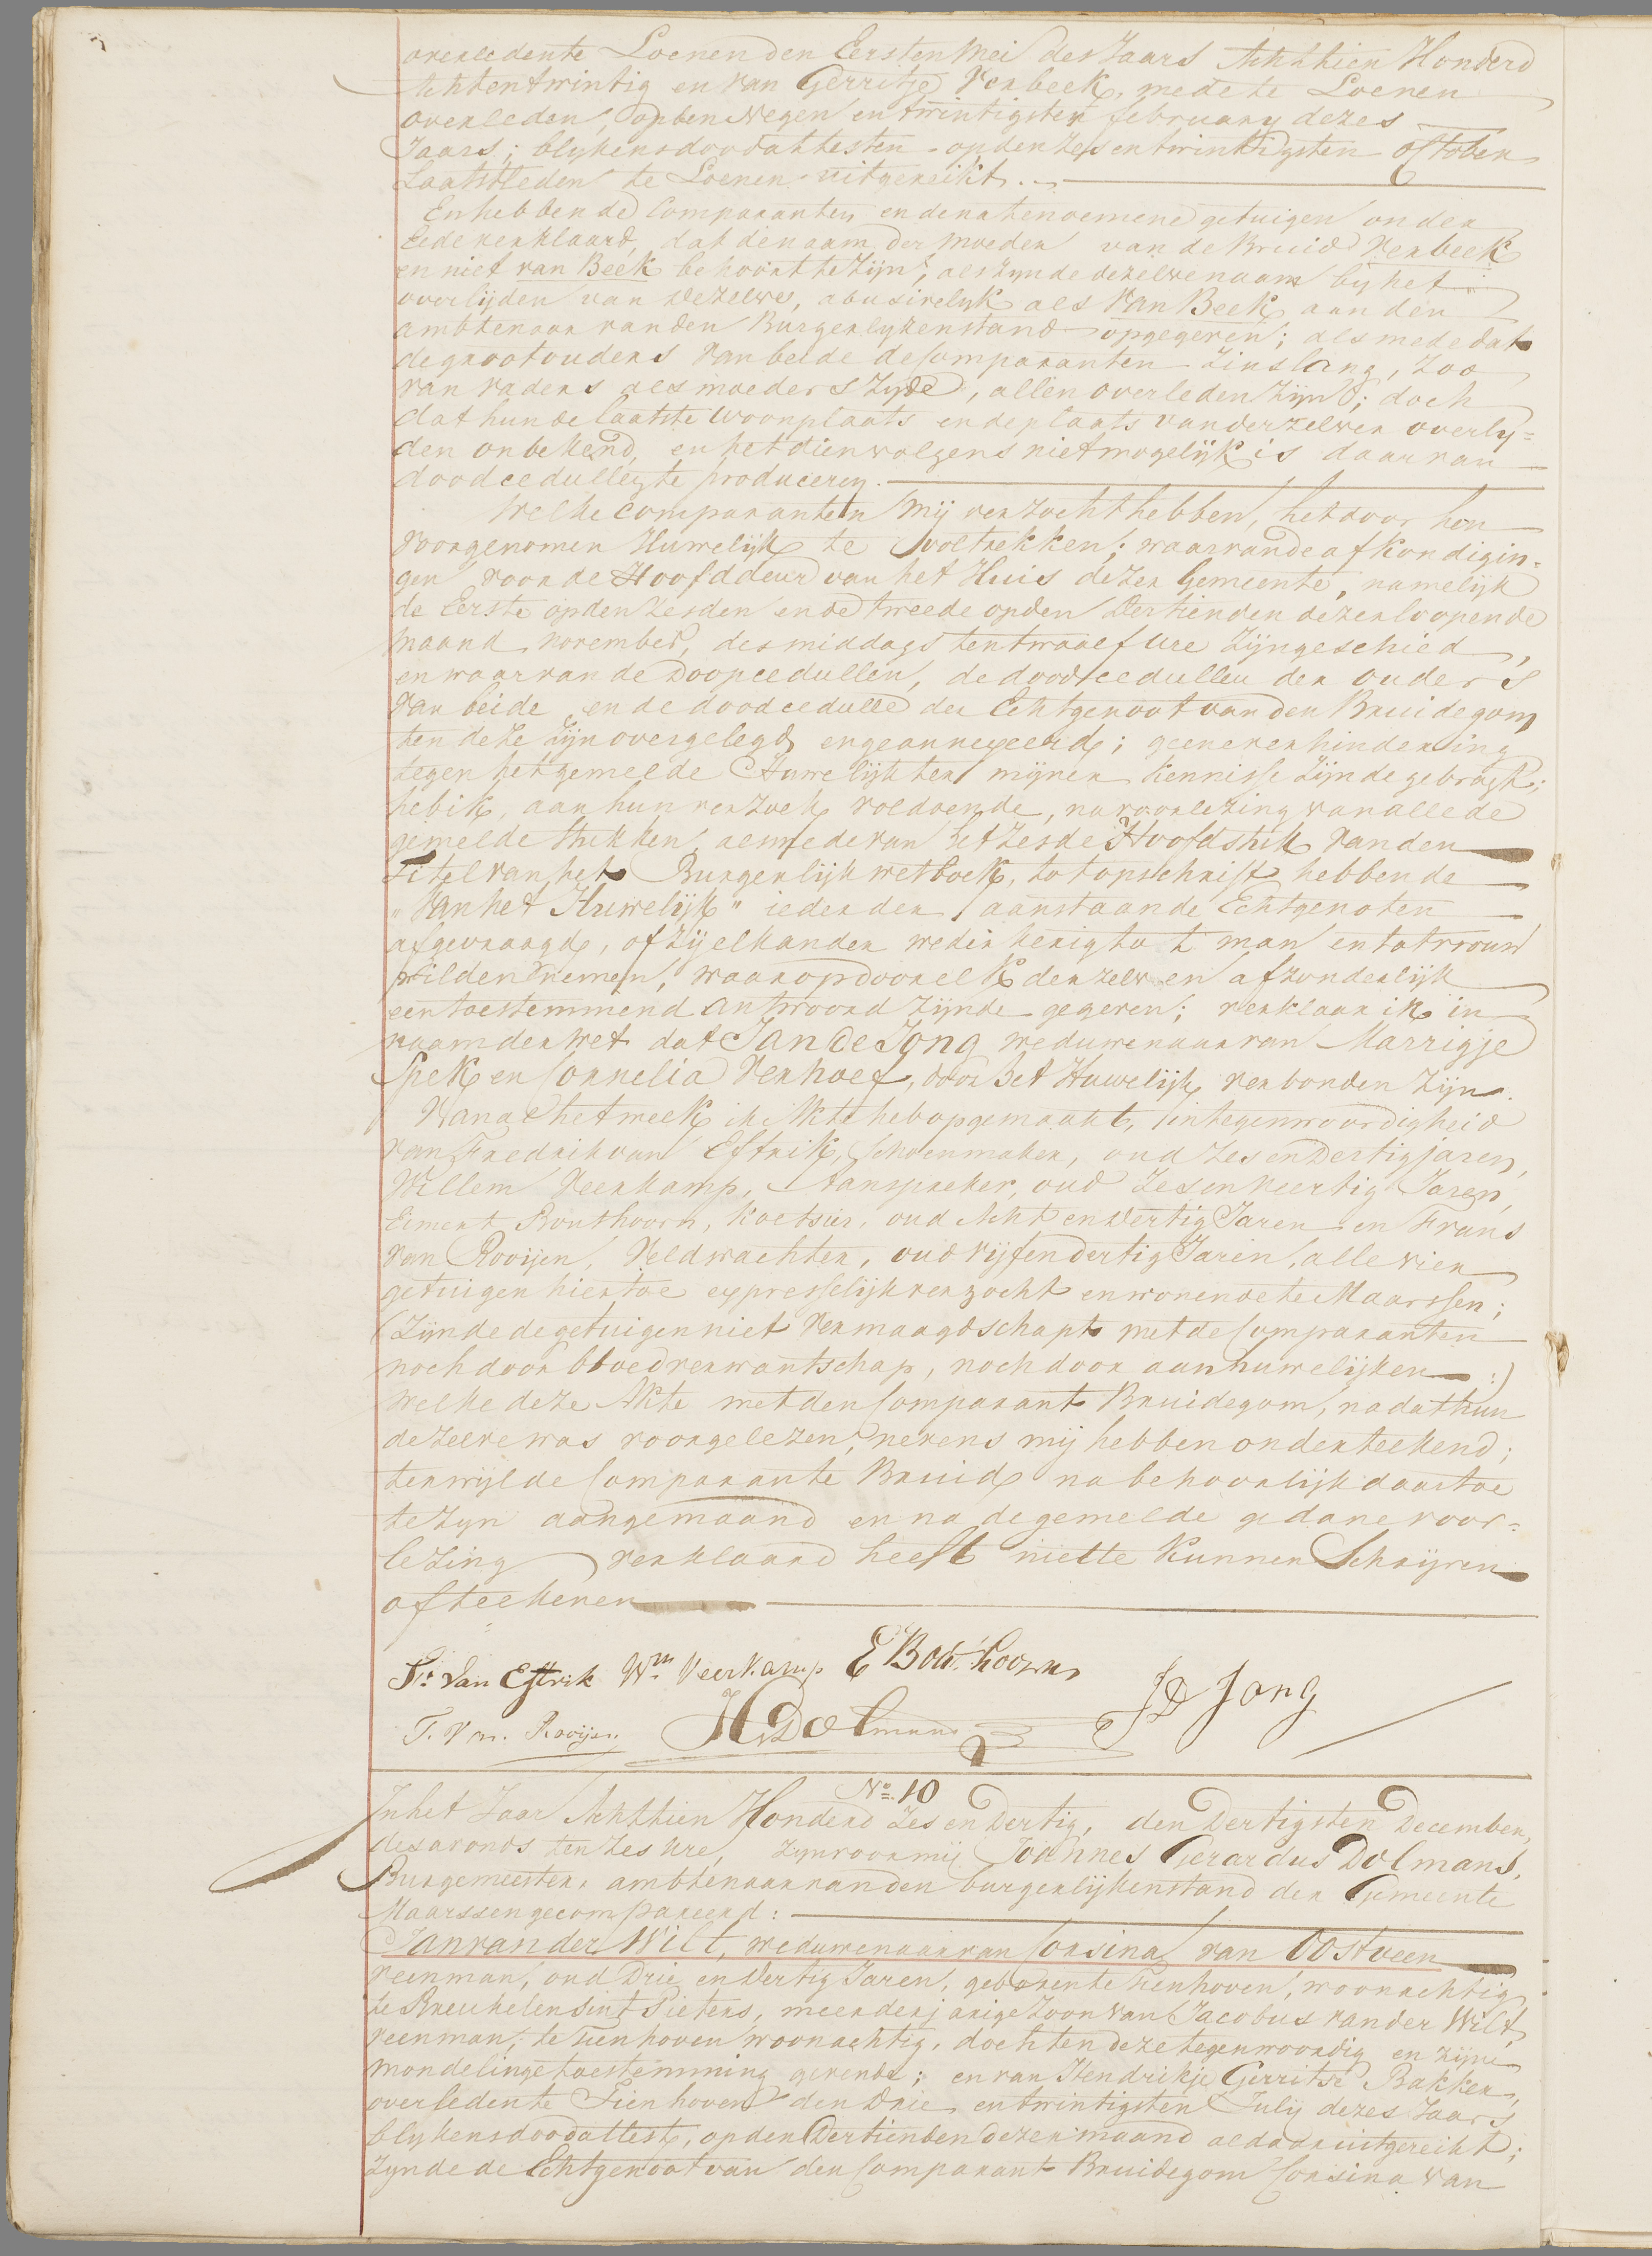 overledente Loenen den Eersten Mei des Jaars Achttien Honderd
Achtentwintig en van Gerritje Verbeek, mede te Loenen
overleden, op den Negen entwintigsten february dezes
Jaars; blykens doodattesten op den Zes entwinttigsten october
Laatstleden te Loenen uitgereikt.
En hebben de Comparanten en de natenoemene getuigen onder
Eede verklaard, dat de naam der Moeder van de Bruid Verbeek
en niet van Beek behoort te zyn, als zynde dezelve naam by het
overlijden van dezelve, abusivelyk als Van Beek aan den
ambtenaar van den Burgerlykenstand opgegeven; als mede dat
de grootouders van beide de Comparanten Zins lang, zoo
van vaders als moeders zyde, allen overleden zijn; doch
dat hun de laatste woonplaats en de plaats van derzelver overly=
den onbekend, en het dienvolgens niet mogelijk is daarvan
doodceedullen te produceren.
Welke comparanten Mij verzocht hebben, het door hen
voorgenomen Huwelijk te voltrekken; waarvan de afkondigin=
gen voor de Hoofddeur van het Huis dezer Gemeente, namelijk
de Eerste op den Zesden en de tweede op den Dertienden dezer loopende
maand november, des middags ten twaalf ure zijn geschied,
en waarvan de Doopceedullen, de doodceedullen der ouders
van beide en de doodceedulle der Echtgenoot van den Bruidegom
ten deze zijn overgelegd en geannexeerd; geene verhindering
tegen het gemelde Huwelijk ter mijner kennisse zijnde gebragt;
heb ik, aan hun verzoek voldoende, na voorlezing van alle de
gemelde stukken, alsmede van het Zesde Hoofdstuk van den
Titel van het Burgerlijk wetboek, tot opschrift hebbende
"Van het Huwelijk" ieder der aanstaande Echtgenoten
afgevraagd, of zij elkander wederkerig tot man en tot vrouw
wilden nemen, waarop door elk derzelven afzonderlijk
een toestemmend antwoord zijnde gegeven; verklaar ik in
naam der wet dat Jan de Jong weduwenaar van Marrigje
Spek en Cornelia Verhoef, door het Huwelijk verbonden zijn.
Van al hetwelk ik Akte heb opgemaakt, in tegenwoordigheid
van Fredrik van Estrik, Schoenmaker, oud Zes en Dertig jaren,
Willem Veerkamp, Aanspreker, oud Zes en veertig Jaren,
Eimert Bouthoorn, Koetsier, oud Acht en Dertig Jaren en Frans
van Rooijen, Veldwachter, oud vijf en dertig Jaren, alle vier
getuigen hiertoe expresselijk verzocht en wonende te Maarssen;
(Zijnde de getuigen niet vermaagdschapt met de Comparanten
noch door bloedverwantschap, noch door aanhuwelijken :)
welke deze Akte met den Comparant Bruidegom, nadat hun
dezelve was voorgelezen, nevens mij hebben onderteekend;
terwijl de Comparante Bruid na behoorlijk daartoe
te zyn aangemaand en na de gemelde gedane voor=
lezing verklaard heeft niet te kunnen Schrijven
of teekenen
Fr. van Estrik Wm Veerkamp E Bouthoorn
JD Jong
F. Van. Rooijen HDolmans
No. 10
In het Jaar Achttien Honderd Zes en Dertig, den Dertigsten December,
des avonds ten Zes ure, zyn voor mij Joannes Gerardus Dolmans,
Burgemeester, ambtenaar van den burgerlijkenstand der Gemeente
Maarssen gecompareerd:
Jan van der Wilt, weduwenaar van Corsina van Oostveen
veenman, oud Drie en Dertig Jaren, geboren te Tienhoven, woonachtig
te Breukelen Sint Pieters, meerderjarige Zoon van Jacobus van der Wilt,
veenman, te Tienhoven woonachtig, doch ten deze tegenwoordig en zijne
mondelinge toestemming gevende; en van Hendrikje Gerritse Bakker,
overleden te Tienhoven den Drie entwintigsten July dezes Jaars
blykens doodattest, op den Dertienden dezer maand aldaar uitgereikt;
zynde de Echtgenoot van den Comparant Bruidegom Corsina van